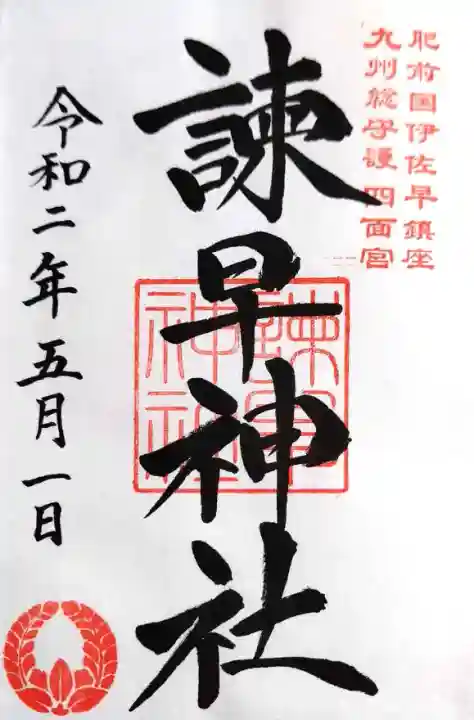 肥前国伊佐早鎮座
九州総守護四面宮
諫早神社
諫早神社
令和二年五月一日